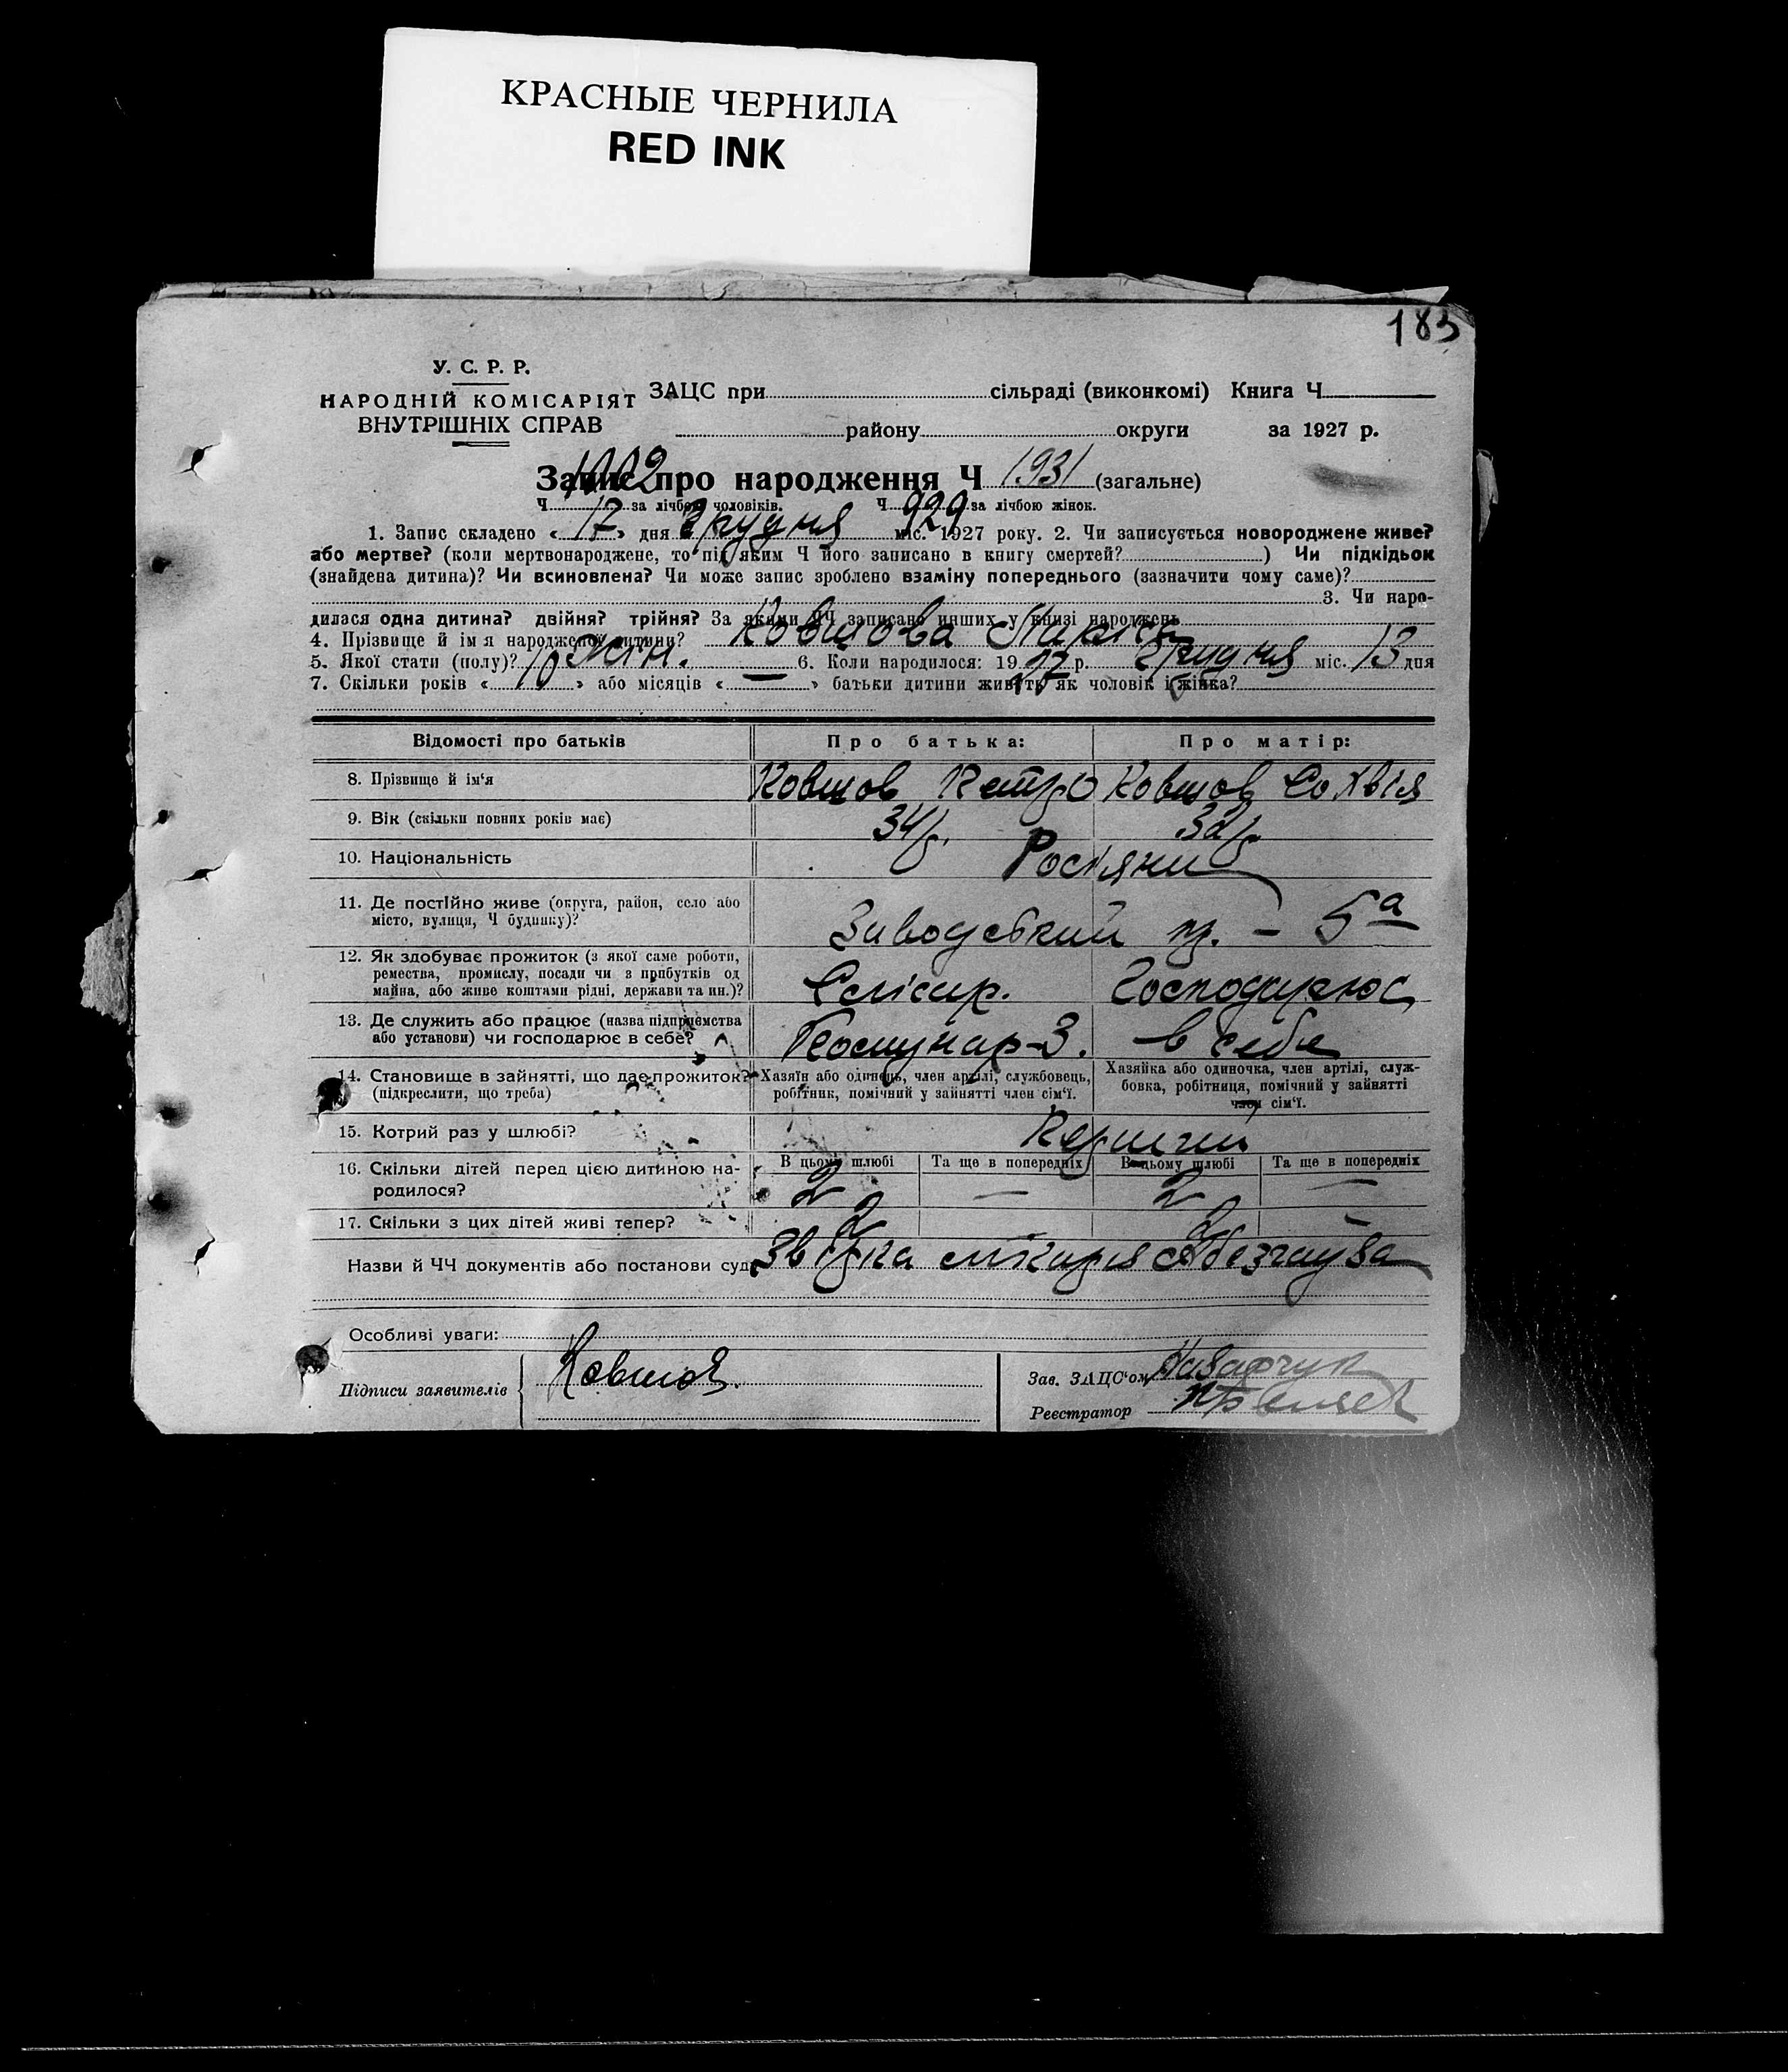 КРАСНЫЕ ЧЕРНИЛА
RED INK
183
У. С. Р. Р.
НАРОДНІЙ КОМІСАРІЯТ
ВНУТРІШНІХ СПРАВ
ЗАЦС при сільраді (виконкомі) Книга Ч
району округи за 1927 р.
Запис про народження Ч 1931 (загальне)
Ч 1002 за лічбою чоловіків. Ч 929 за лічбою жінок.
1. Запис складено « 17 » дня Грудня міс. 1927 року. 2. Чи записується новороджене живе?
або мертве? (коли мертвонароджене, то під яким Ч його записано в книгу смертей? ) Чи підкідьок
(знайдена дитина)? Чи всиновлена? Чи може запис зроблено взаміну попереднього (зазначити чому саме)?
3. Чи наро-
дилася одна дитина? двійня? трійня? За якими ЧЧ записано инших у книзі народжень
4. Прізвище й ім я народженої дитини? Ковшова
5. Якої стати (полу)? Жін. 6. Коли народилося: 1927 р. Грудня міс. 13 дня
7. Скільки років « 10 » або місяців « — » батьки дитини живуть як чоловік і жінка?
Відомості про батьків Про батька: Про матір:
8. Прізвище й ім'я Ковшов Петро Ковшов Сохвія
9. Вік (скільки повних років має) 34 р. 32 р.
10. Національність Росіяни
11. Де постійно живе (округа, район, село або
місто, вулиця, Ч будинку)? Заводський пр. – 5а
12. Як здобуває прожиток (з якої саме роботи,
ремества, промислу, посади чи з прибутків од
майна, або живе коштами рідні, держави та ин.)? Слюсар. Господарює
13. Де служить або працює (назва підприємства
або установи) чи господарює в себе? Комунар-З. в себе
14. Становище в зайнятті, що дає прожиток?
(підкреслити, що треба)
Хазяїн або одинець, член артілі, службовець,
робітник, помічний у зайнятті член сім'ї.
Хазяйка або одиночка, член артілі, служ-
бовка, робітниця, помічний у зайнятті
член сім'ї.
15. Котрий раз у шлюбі? Перший
16. Скільки дітей перед цією дитиною на-
родилося?
В цьому шлюбі Та ще в попередніх В цьому шлюбі Та ще в попередніх
2 — 2 —
17. Скільки з цих дітей живі тепер? 2 2
Назви й ЧЧ документів або постанови суд. лікаря
Особливі уваги:
Підписи заявителів Ковшов.
Зав. ЗАЦС'ом
Реєстратор